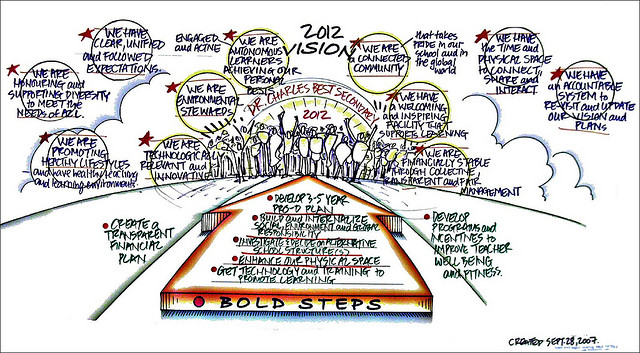 2012
VISION
WE HAVE
CLEAR, UNIFIED
and FOLLOWED
EXPECTATIONS.
ENGAGED
and ACTIVE
WE ARE
AUTONOMOUS
LEARNERS
ACHIEVING OUR
PERSONAL
BESTS
WE ARE
a CONNECTED
COMMUNITY
that takes
PRIDE in our
school and in
the global
world
WE HAVE
the TIME and
PHYSICAL SPACE
to CONNECT,
SHARE and
INTERACT
WE ARE
HONOURING and
SUPPORTING DIVERSITY
to MEET the
NEEDS of ALL.
WE ARE
ENVIRONMENTAL
STEWARDS
DR. CHARLES BEST SECONDARY
2012
WE HAVE
a WELCOMING
and INSPIRING
FACILITY THAT
SUPPORTS LEARNING
WE HAVE
an ACCOUNTABLE
SYSTEM to
REVISIT and UPDATE
OUR VISION and
PLANS
WE ARE
PROMOTING
HEALTHY LIFESTYLES
and have healthy teaching
and learning environments.
WE ARE
TECHNOLOGICALLY
RELEVANT and
INNOVATIVE
WE ARE
FINANCIALLY STABLE
THROUGH COLLECTIVE,
TRANSPARENT and FAIR
MANAGEMENT
CREATE a
TRANSPARENT
FINANCIAL
PLAN
DEVELOP 3-5 YEAR
PRO-D PLAN
BUILD and INTERNALIZE
SOCIAL, ENVIRONMENT and GLOBAL
RESPONSIBILITY
INVESTIGATE & DECIDE on ALTERNATIVE
SCHOOL STRUCTURE(S)
ENHANCE OUR PHYSICAL SPACE
GET TECHNOLOGY and TRAINING to
PROMOTE LEARNING
DEVELOP
PROGRAMS and
INCENTIVES to
IMPROVE TEACHER
WELL BEING
and FITNESS.
BOLD STEPS
CREATED SEPT. 28, 2007.